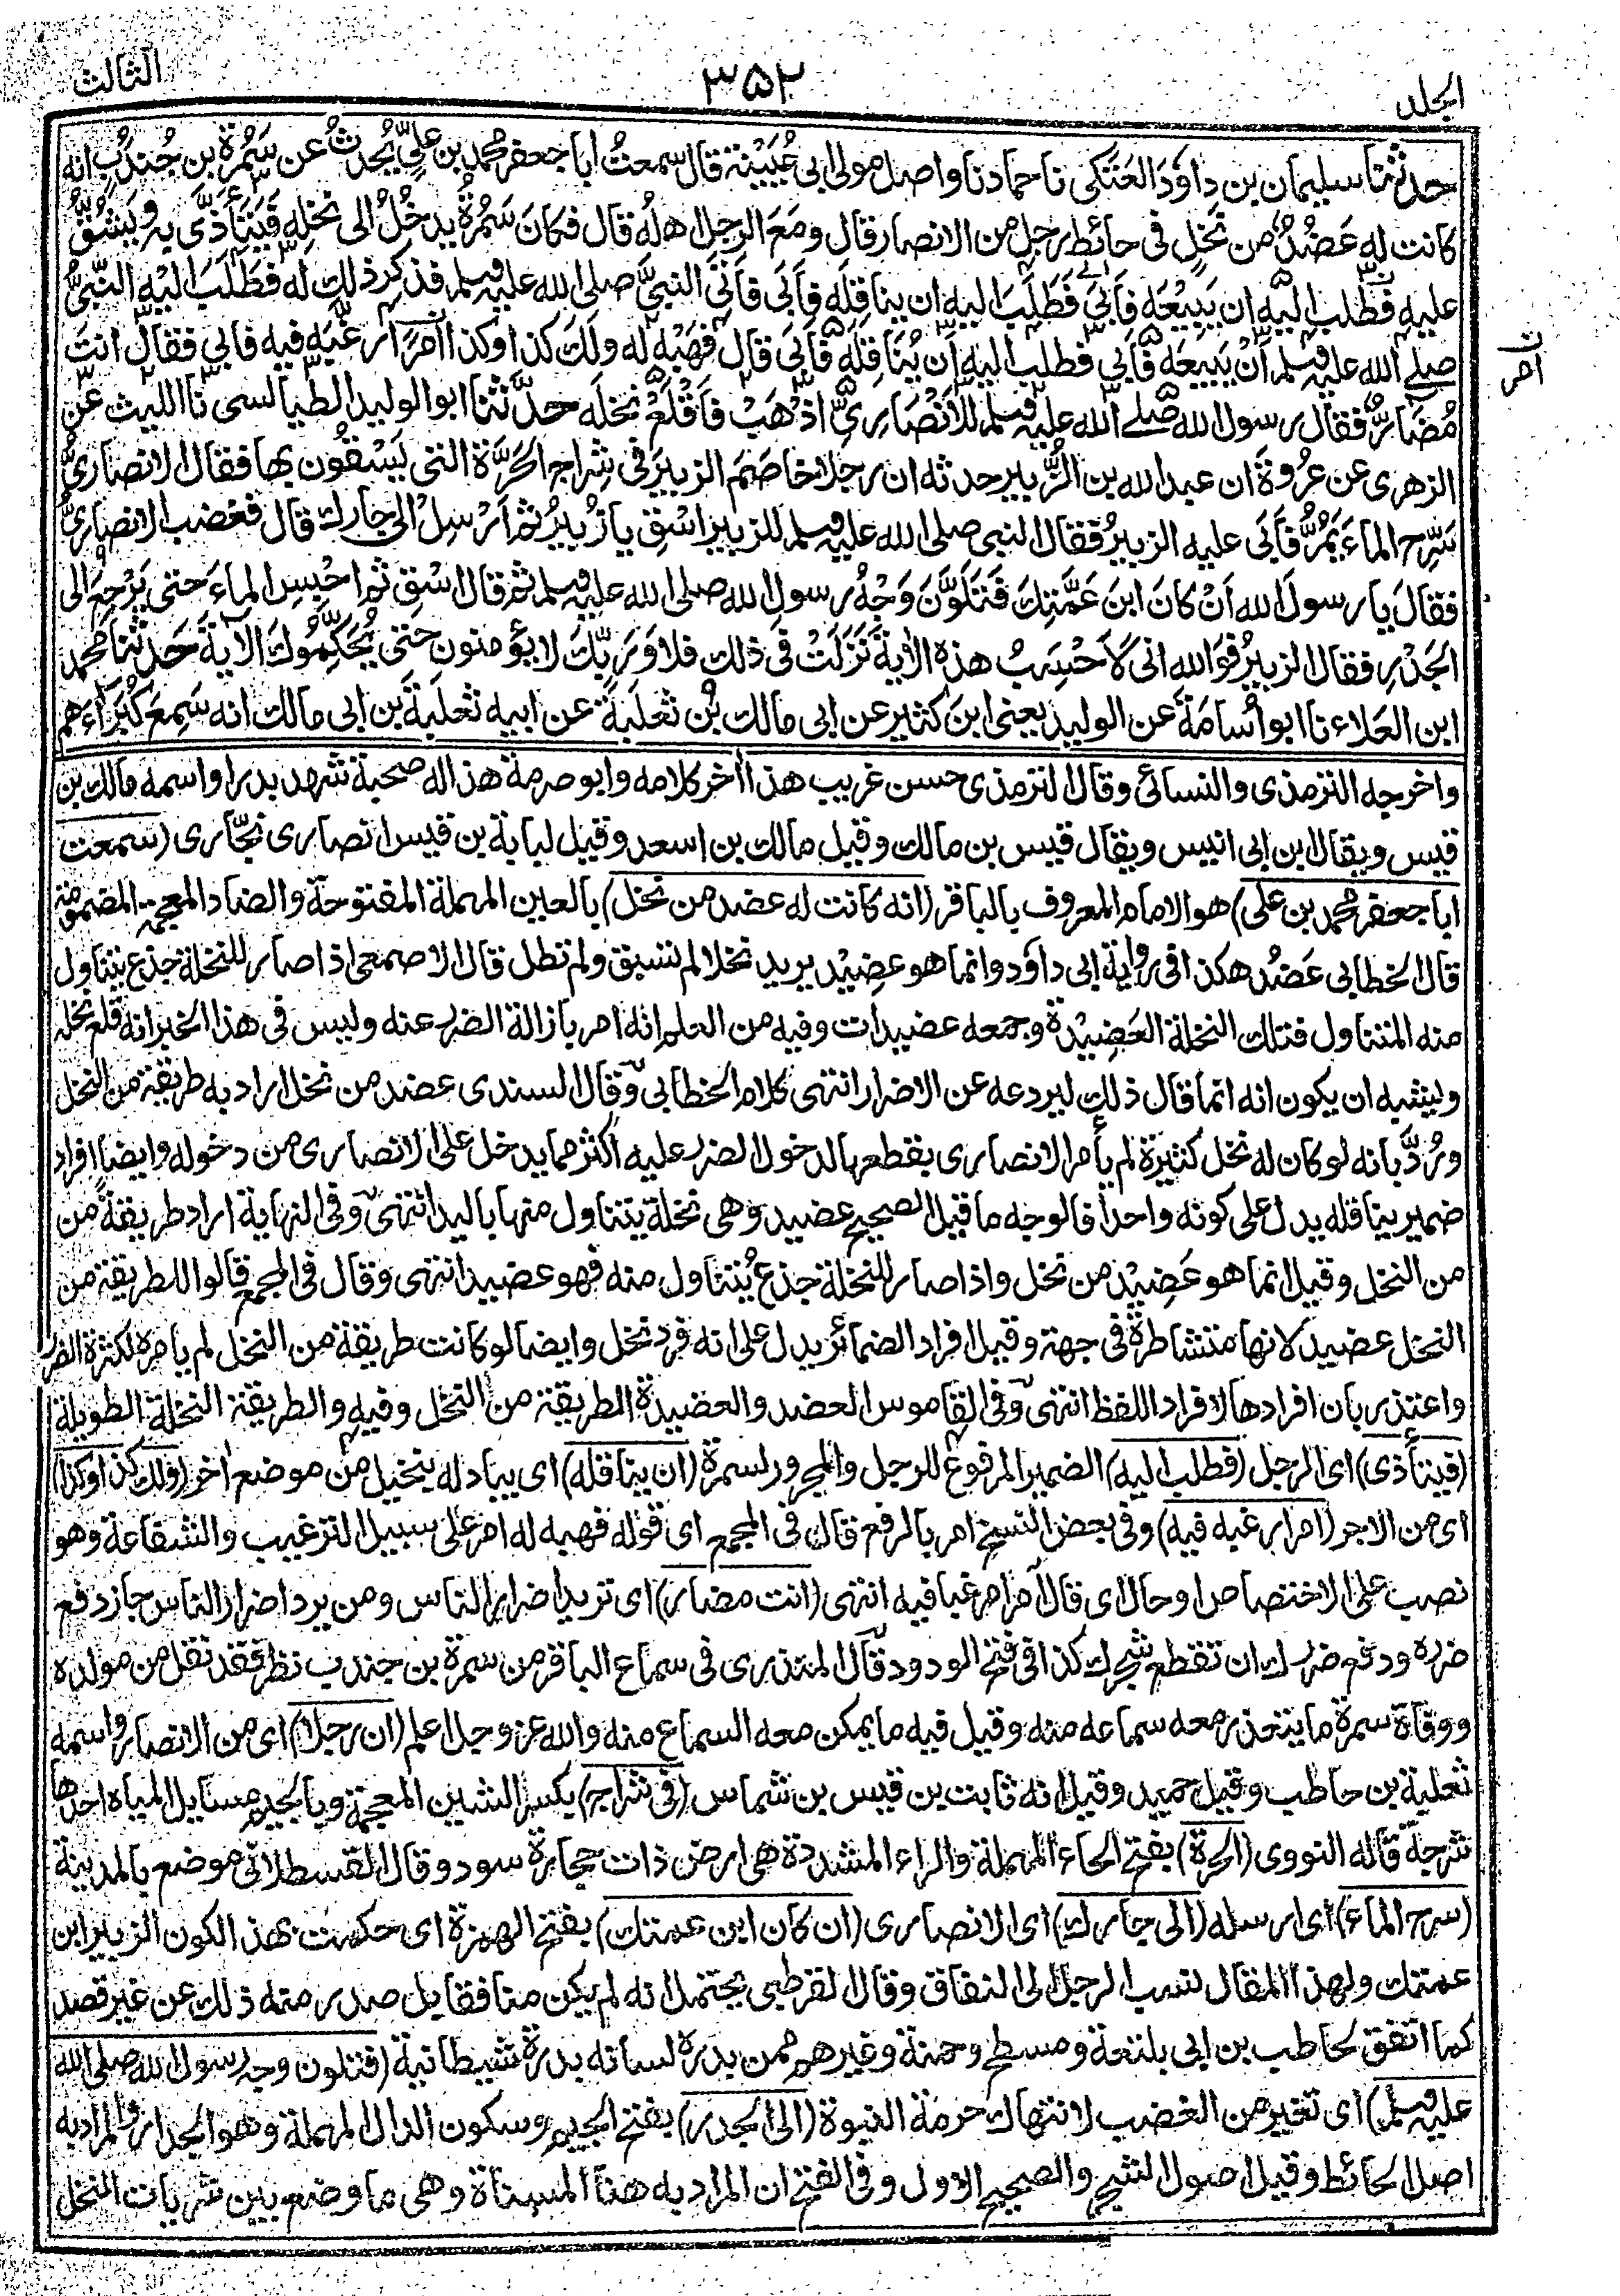 الجلد
٣٥٢
الثالث
حدثنا سليمان بن داوٗدَ العَتَكى نا حماد نا واصل مولى ابى عُيَيْنة قال سمعتُ ابا جعفر محمد بن علىٍّ يُحدث عن سَمُرة بن جُندُب انه
كانت له عَضُدٌ من نَخلٍ فى حائط رجلٍ من الانصار قال ومَعَ الرجل اهلُه قال فكانَ سَمُرةُ يدخُلُ الى نخلِه فَيَتَأذَّى به ويَشُقُّ
عليهِ فطَلب اليه ان يَبِيْعَه فأبىٰ فَطَلَبَ اليه ان يناقلَه فأبَى فأتَى النبىَّ صلى الله عليه وسلم فذكر ذلك له فطَلَبَ اليْهِ النّبِىُّ
صلى الله عليه وسلم أنْ يَبِيعَه فأبى فطلب اليه أن يُناقِلَه فأبَى قال فهَبْه له ولَكَ كذا وكذا امْرًا رغَّبَه فيه فابى فقال انتَ
مُضَارٌّ فقال رسول الله صلى الله عليه وسلم للأنْصَارِىِّ اذْهَبْ فاقْلَعْ نخلَه حدَّثنا ابو الوليد الطيالسى نا الليث عن
الزهرى عن عروةَ ان عبد الله بن الزُّبير حدثه ان رجلا خاصَمَ الزبيرَ فى شِراجِ الحَرَّة التى يَسْقُون بها فقال الانصارىُّ
سَرِّح الماءَ يَمُرُّ فأبَى عليه الزبيرُ فقال النبى صلى الله عليه وسلم للزبير اسْقِ يا زُبيرُ ثم أرْسِلْ الى جارك قال فغضب الانصارىُّ
فقالَ يا رسولَ الله أنْ كانَ ابنَ عَمَّتِكَ فَتَلَوَّنَ وَجْهُ رسولِ الله صلى الله عليه وسلم ثم قال اسْقِ ثم احْبِسِ الماءَ حتى يَرْجِعَ الى
الجَدْرِ فقال الزبيرُ فوَالله انى لَاَحْسِبُ هذه الآيةَ نَزَلَتْ فى ذلك فلا وَرَبِّكَ لا يؤمنون حتى يُحَكِّمُوكَ الآية حَدثنا محمد
ابن العَلاء نا ابو أُسامَةَ عن الوليد يعنى ابنَ كثير عن ابى مالك بن ثعلبَةَ عن ابيه ثعلبَةَ بن ابى مالك انه سَمِعَ كُبَرَاءَهم
ن
امر
واخرجه الترمذى والنسائى وقال الترمذى حسن غريب هذا اٰخر كلامه وابو صرمة هذا له صحبة شهد بدرا واسمه مالك بن
قيس ويقال ابن ابى انيس ويقال قيس بن مالك وقيل مالك بن اسعد وقيل لبابة بن قيس انصارى نجّارى (سمعت
ابا جعفر محمد بن على) هو الامام المعروف بالباقر (انه كانت له عضد من نخل) بالعين المهملة المفتوحة والضاد المعجمة المضمومة
قال الخطابى عَضُد هكذا فى رواية ابى داوٗد وانما هو عضِيْد يريد نخلا لم تسبق ولم تطل قال الاصمعى اذا صار للنخلة جذع يتناول
منه المتناول فتلك النخلة العَضِيْدة وجمعه عضيدات وفيه من العلم انه امر بازالة الضرر عنه وليس فى هذا الخبر انه قلع نخله
ويشبه ان يكون انه انما قال ذلك ليردعه عن الاضرار انتهى كلام الخطابى وقال السندى عضد من نخل اراد به طريقة من النخل
ورُدَّ بانه لو كان له نخل كثيرة لم يأمر الانصارى بقطعها لدخول الضرر عليه اكثر مما يدخل على الانصارى من دخوله وايضا افراد
ضمير يناقله يدل على كونه واحدا فالوجه ما قيل الصحيح عضيد وهى نخلة يتناول منها باليد انتهى وفى النهاية اراد طريقةً من
من النخل وقيل انما هو عَضِيْد من نخل واذا صار للنخلة جذع يُتناول منه فهو عضيد انتهى وقال فى المجمع قالوا للطريقة من
النخل عضيد لانها متشاطرة فى جهة وقيل افراد الضمائر يدل على انه فرد نخل وايضا لو كانت طريقة من النخل لم يامره لكثرة الضرر
واعتذر بان افرادها لافراد اللفظ انتهى وفى القاموس العضد والعضيدة الطريقة من النخل وفيه والطريقة النخلة الطويلة
(فيتأذى) اى الرجل (فطلب اليه) الضمير المرفوع للرجل والمجرور لسمرة (ان يناقله) اى يبادله بنخيل من موضع اٰخر (ولك كذا وكذا)
اى من الاجر (امرا رغبه فيه) وفى بعض النسخ امر بالرفع قال فى المجمع اى قوله فهبه له امر على سبيل الترغيب والشفاعة وهو
نصب على الاختصاص او حال اى قال اٰمرا مرغبا فيه انتهى (انت مضار) اى تريد اضرار الناس ومن يرد اضرار الناس جاز دفع
ضرره ودفع ضررك ان تقطع شجرك كذا فى فتح الودود قال المنذرى فى سماع الباقر من سمرة بن جندب نظر فقد نقل من مولده
ووفاة سمرة ما يتعذر معه سماعه منه وقيل فيه ما يمكن معه السماع منه والله عز وجل اعلم (ان رجلا) اى من الانصار واسمه
ثعلبة بن حاطب وقيل حميد وقيل انه ثابت بن قيس بن شماس (فى شراج) بكسر الشين المعجمة وبالجيم مسايل المياه احدها
شرجة قاله النووى (الحرة) بفتح الحاء المهملة والراء المشددة هى ارض ذات حجارة سود وقال القسطلانى موضع بالمدينة
(سرح الماء) اى ارسله (الى جارك) اى الانصارى (ان كان ابن عمتك) بفتح الهمزة اى حكمت بهذا لكون الزبير ابن
عمتك ولهذا المقال نسب الرجل الى النفاق وقال القرطبى يحتمل انه لم يكن منافقا بل صدر منه ذلك عن غير قصد
كما اتفق لحاطب بن ابى بلتعة ومسطح وحمنة وغيرهم ممن بدره لسانه بدرة شيطانية (فتلون وجه رسول الله صلى الله
عليه وسلم) اى تغير من الغضب لانتهاك حرمة النبوة (الى الجدر) بفتح الجيم وسكون الدال المهملة وهو الجدار والمراد به
اصل الحائط وقيل اصول الشجر والصحيح الاول وفى الفتح ان المراد به هنا المسناة وهى ما وضع بين شربات النخل